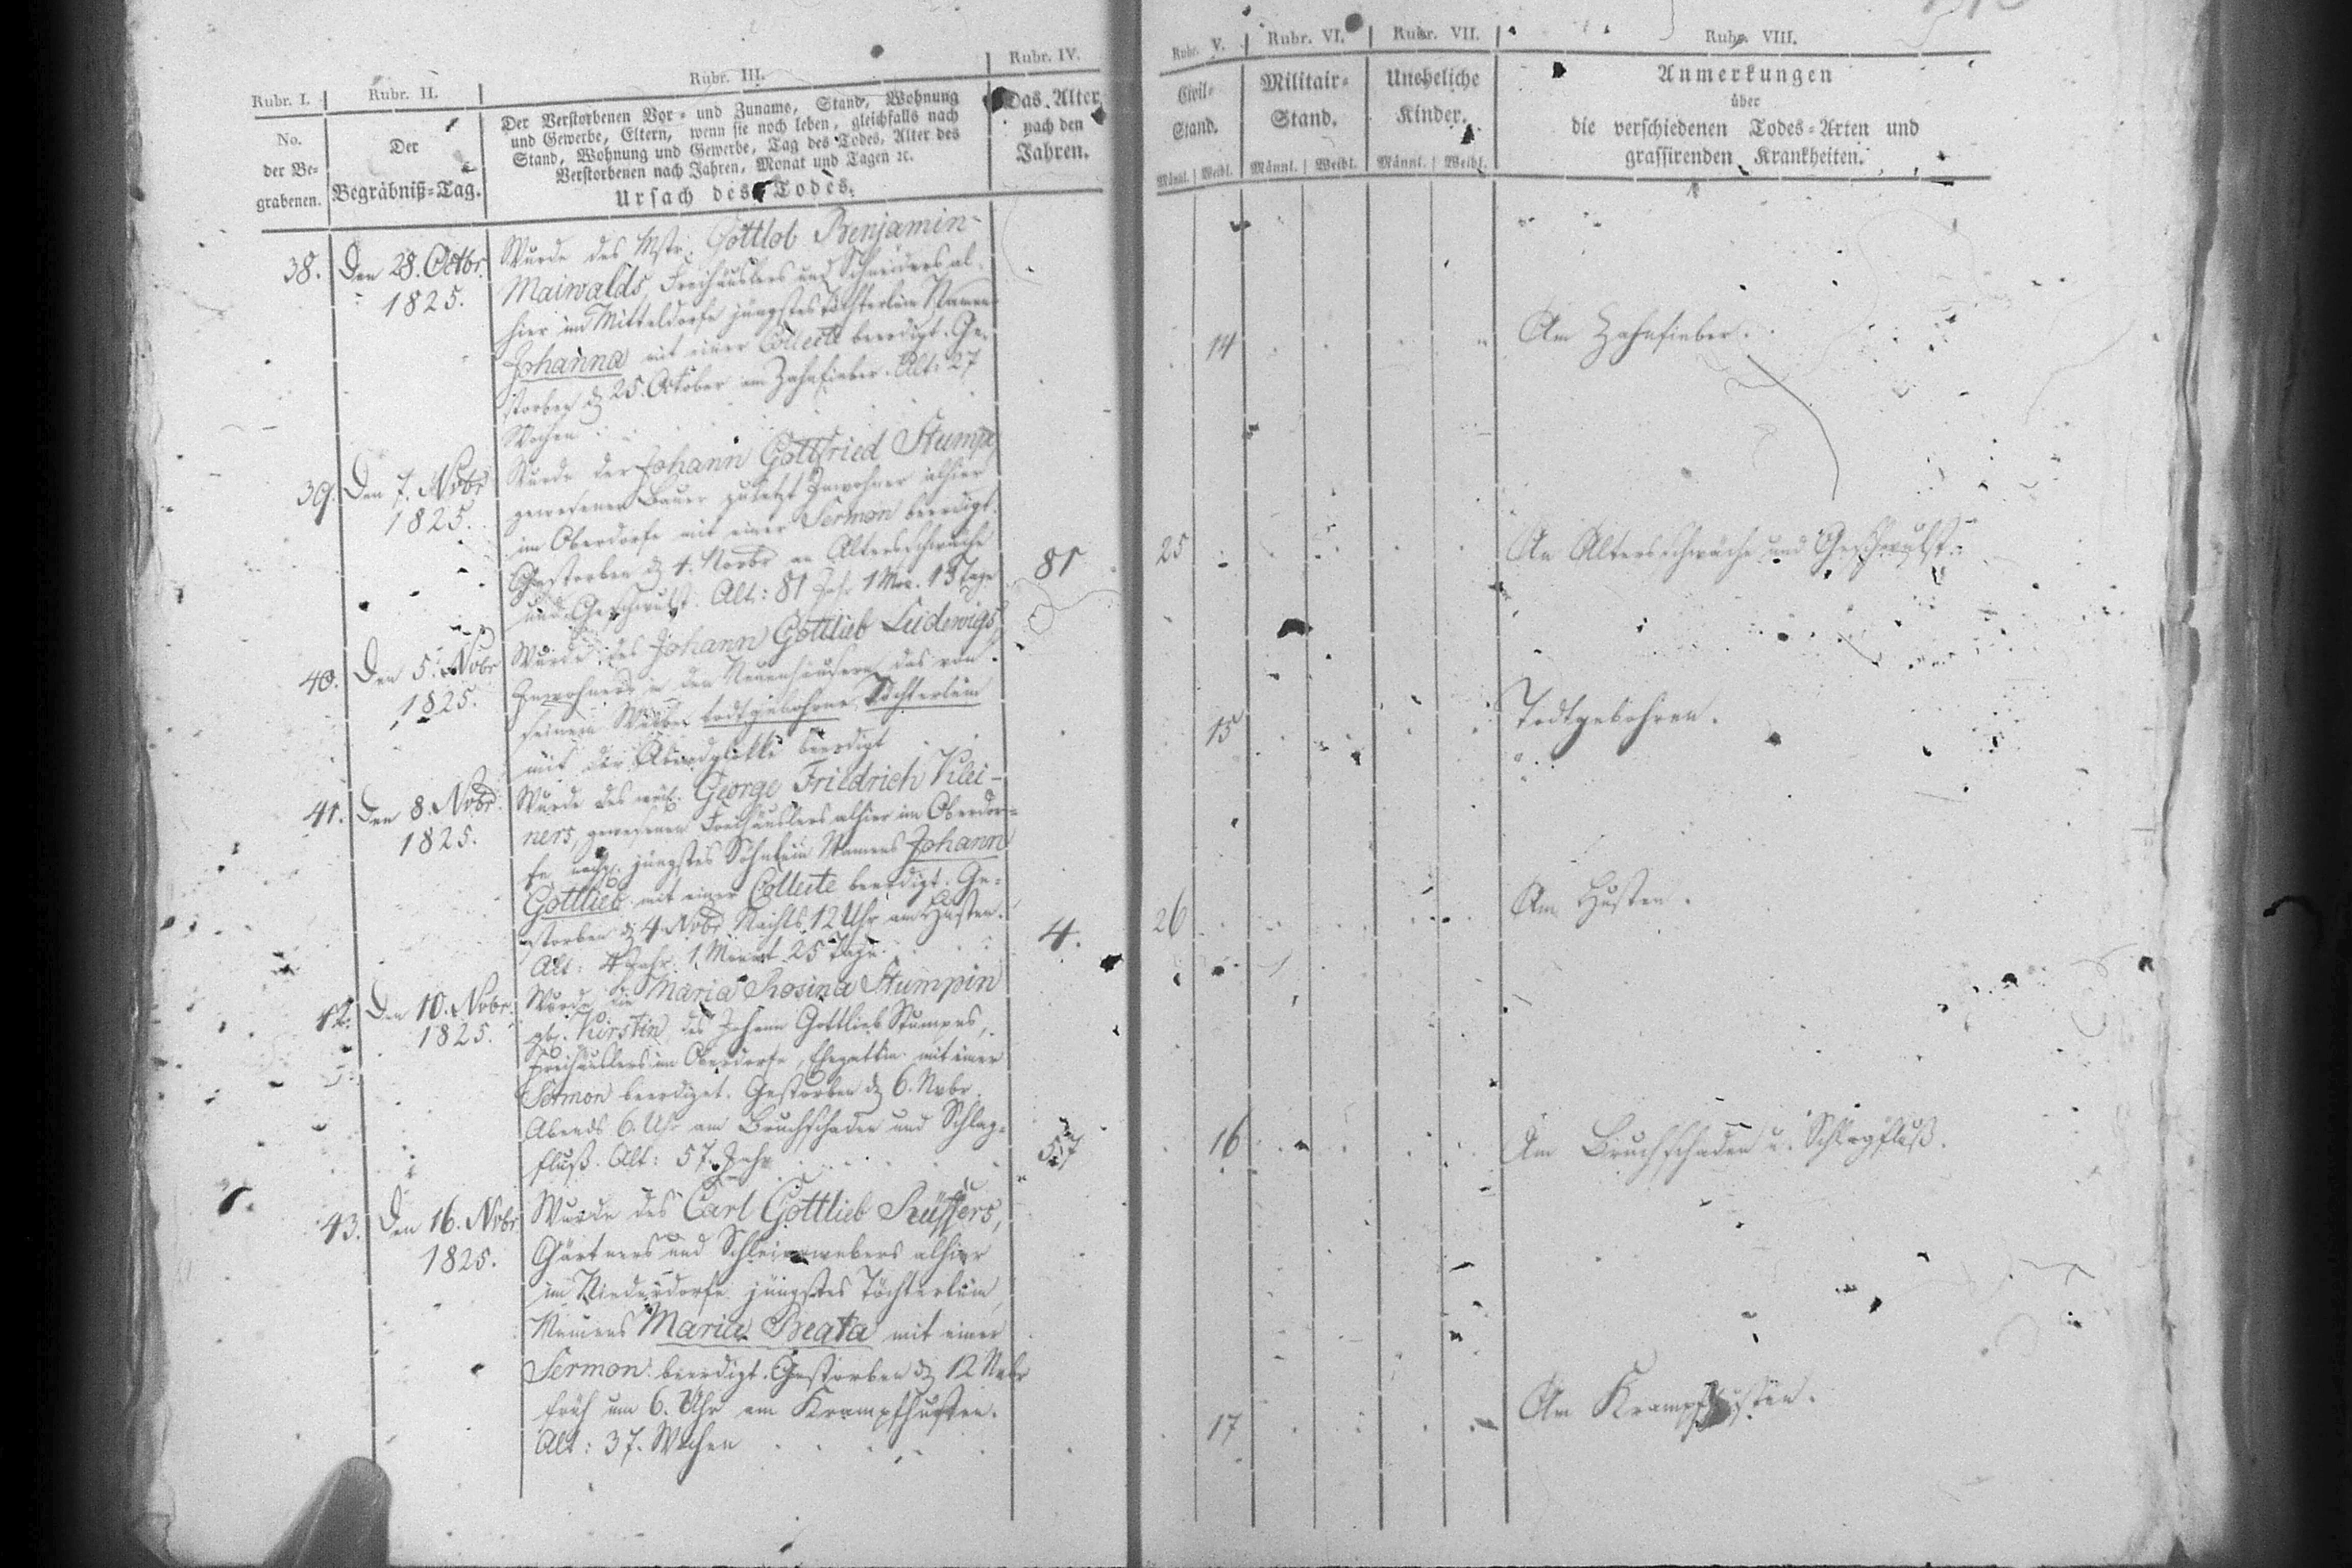 Rubr. I.
Rubr. II.
Rubr. III.
Rubr. IV.
No.
der Be-
grabenen.
Der
Begräbniß-Tag.
Der Verstorbenen Vor- und Zuname, Stand, Wohnung
und Gewerbe, Eltern, wenn sie noch leben, gleichfalls nach
Stand, Wohnung und Gewerbe, Tag des Todes, Alter des
Verstorbenen nach Jahren, Monat und Tagen ꝛc.
Ursach des Todes.
Das Alter
nach den
Jahren.
38.
Den 28. Octbr.
1825.
Wurde des Mstr. Gottlob Benjamin
Maiwalds, Freihäuslers und Schneiders al-
hier im Mitteldorfe jüngstes Töchterlein Namens
Johanna mit einer Collecte beerdigt. Ge-
storben d. 25. October am Zahnfieber. Alt: 27
Wochen
39.
Den 7. Nobr
1825.
Wurde der Johann Gottfried Stumpe
gewesener Bauer zuletzt Inwohner alhier
im Oberdorfe mit einer Sermon beerdigt.
Gestorben d. 4. Novbr an Altersschwäche
und Geschwulst. Alt: 81 Jahr 1 Mon. 15 Tage
81
40.
Den 5. Nobr
1825.
Wurde des Johann Gottlieb Ludewigs,
Inwohners in den Neuenhäusern, das von
seinem Weibe todtgebohrne Töchterlein
mit der beerdigt
41.
Den 8. Nobr.
1825.
Wurde des George Friedrich Klei-
ners, gewesenen Freihäuslers alhier im Oberdor-
fe jüngstes Söhnlein Namens Johann
Gottlieb mit einer Collecte beerdigt. Ge-
storben d. 4. Nobr Nachts 12 Uhr am Husten.
Alt: 4 Jahr 1 Monat 25 Tage.
4.
42.
Den 10. Nobr.
1825.
Wurde die Maria Rosina Stumpin
gb. Kirstin, des Johann Gottlieb Stumpes,
Freihäuslers im Oberdorfe, Ehegattin mit einer
Sermon beerdiget. Gestorben d. 6. Nvbr.
Abends 6. Uhr am Bruchschaden und Schlag-
fluß. Alt: 57. Jahr
57
43.
Den 16. Nobr
1825.
Wurde des Carl Gottlieb Rüffers,
Gärtners und Schleierwebers alhier
im Niederdorfe jüngstes Töchterlein,
Namens Maria Beata mit einer
Sermon beerdigt. Gestorben d. 12 Nvbr
früh um 6. Uhr am Krampfhusten.
Alt: 37. Wochen
Rubr. V.
Rubr. VI.
Rubr. VII.
Rubr. VIII.
Civil-
Stand.
Männl. Weibl.
Militair-
Stand.
Männl. Weibl.
Uneheliche
Kinder.
Männl. Weibl.
Anmerkungen
über
die verschiedenen Todes-Arten und
grassirenden Krankheiten.
14
Am Zahnfieber.
25
An Altersschwäche und Geschwulst.
15
Todtgebohren.
26
Am Husten.
16
Am Bruchschaden u. Schlagfluß.
17
Am Krampfhusten.